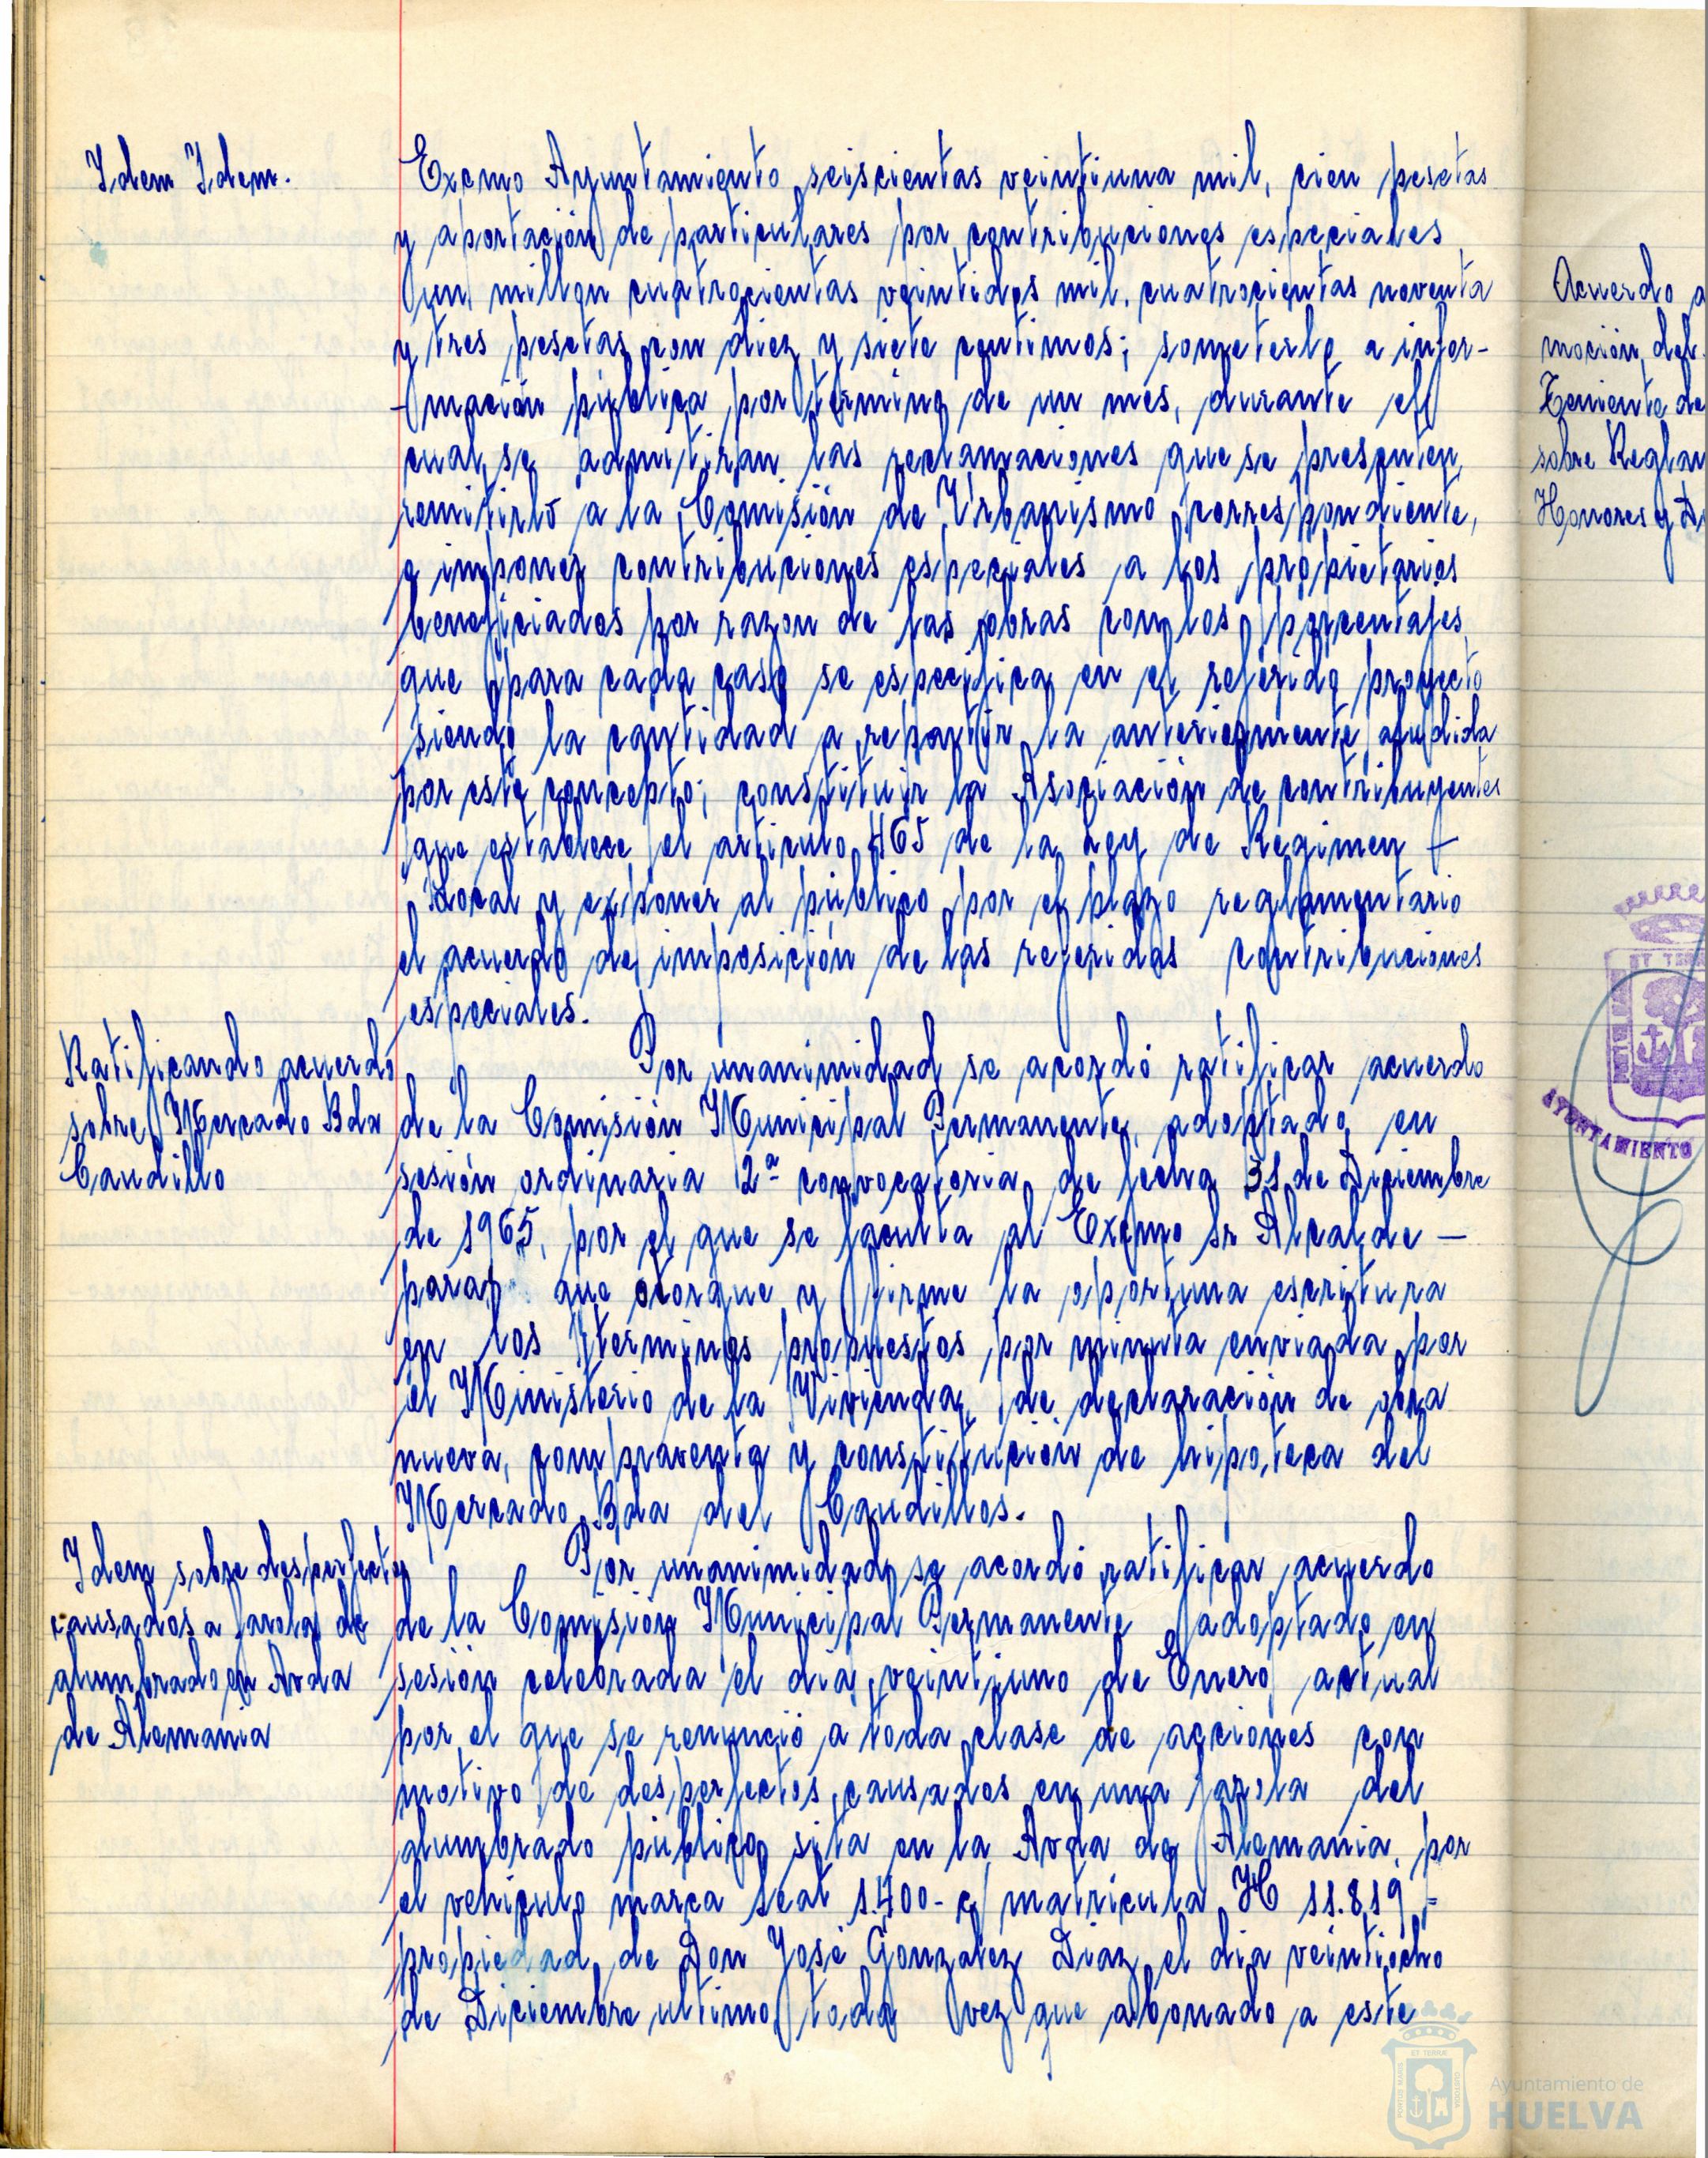 Idem Idem.
Excmo Ayuntamiento seiscientas veintiuna mil, cien pesetas
y aportación de particulares por contribuciones especiales
un millon cuatrocientas veintidos mil, cuatrocientas noventa
y tres pesetas con diez y siete centimos; someterlo a infor-
-mación pública por termino de un mes, durante el
cual se admitirán las reclamaciones que se presenten,
remitirlo a la Comisión de Urbanismo correspondiente,
e imponer contribuciones especiales a los propietarios
beneficiados por razon de las obras con los porcentajes
que para cada caso se especifica en el referido proyecto
siendo la cantidad a repartir la anteriormente aludida
por este concepto; constituir la Asociación de contribuyentes
que establece el articulo 465 de la Ley de Regimen -
Local y exponer al público por el plazo reglamentario
el acuerdo de imposición de las referidas contribuciones
especiales.
Ratificando acuerdo
sobre Mercado Bda
Caudillo
Por unanimidad se acordó ratificar acuerdo
de la Comisión Municipal Permanente, adoptado en
sesión ordinaria 2ª convocatoria de fecha 31 de Diciembre
de 1965, por el que se faculta al Excmo Sr Alcalde —
para que otorgue y firme la oportuna escritura
en los terminos propuestos por minuta enviada por
el Ministerio de la Vivienda, de declaración de obra
nueva, compraventa y constitución de hipoteca del
Mercado Bda del Caudillos.
Idem sobre desperfectos
causados a farola de
alumbrado en Avda
de Alemania
Por unanimidad se acordó ratificar acuerdo
de la Comisión Municipal Permanente adoptado en
sesión celebrada el dia veintiuno de Enero actual
por el que se renunció a toda clase de acciones con
motivo de desperfectos causados en una farola del
alumbrado público sita en la Avda de Alemania, por
el vehiculo marca Seat 1.400-c matricula H 11.819 -
propiedad de Don José Gonzalez Diaz el dia veintiocho
de Diciembre ultimo, toda vez que abonado a este
Acuerdo a
moción del
Teniente de
sobre Reglam
Honores y Di
ET TERR
AYUNTAMIENTO
Ayuntamiento de
HUELVA